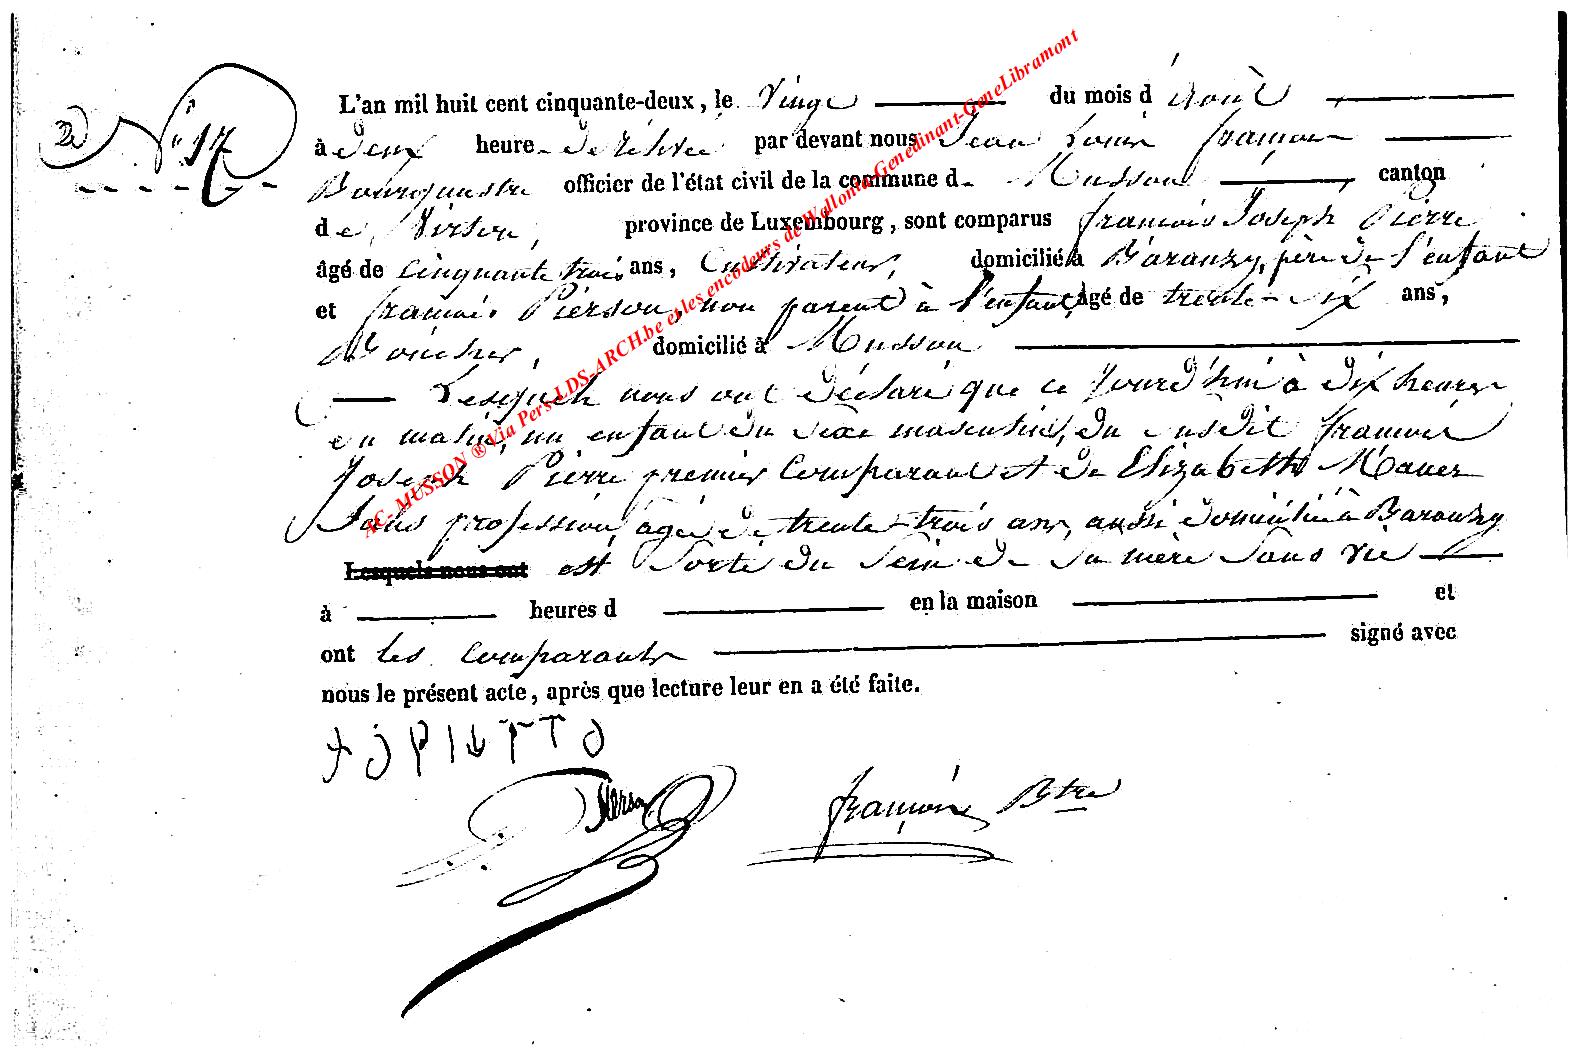 N° 17
L'an mil huit cent cinquante-deux, le Vingt du mois d'Août
à deux heures de relevée par devant nous Jean Louis François
Bourgmestre officier de l'état civil de la commune de Musson canton
de Virton, province de Luxembourg, sont comparus François Joseph Pierre
âgé de cinquante trois ans, Cultivateur, domicilié à Baranzy, père de l'enfant
et François Pierson, non parent à l'enfant, âgé de trente-six ans,
domicilié à Musson
Lesquels nous ont déclaré que ce jourd'hui à dix heures
du matin, un enfant du sexe masculin, du susdit François
Joseph Pierre premier comparant et de Elizabeth
Sans profession, âgée de trente-trois ans, aussi domiciliée à Baranzy
Lesquels nous ont est sorti du sein de sa mère sans vie
à heures d en la maison et
ont les comparants signé avec
nous le présent acte, après que lecture leur en a été faite.
Pierson François Btre
AC- MUSSON ® Via Pers-LDS-ARCH.be et les encodeurs de Wallonia-Genedinant-GeneLibramont